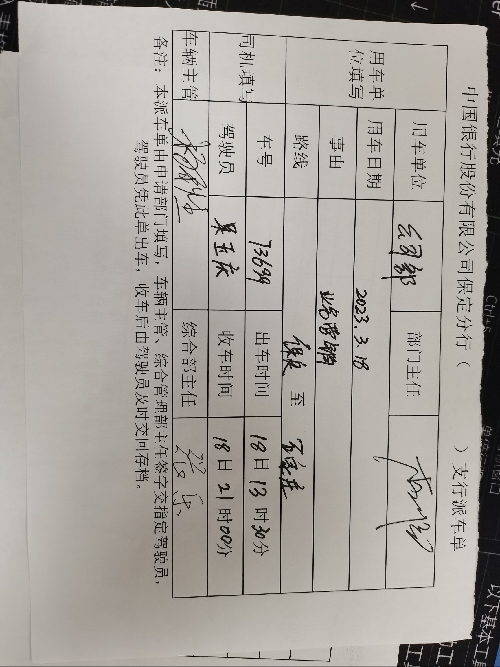 中国银行股份有限公司保定分行（ ）支行派车单
用车单位填写 用车单位 公司部 部门主任
用车日期 2023.3.18
事由 业务营销
路线 保定 至 石家庄
司机填写 车号 73699 出车时间 18日13时30分
驾驶员 吴亚庆 收车时间 18日21时00分
车辆主管 综合部主任
备注：本派车单由申请部门填写，车辆主管、综合管理部主任签字交指定驾驶员，
驾驶员凭此单出车，收车后由驾驶员及时交回存档。